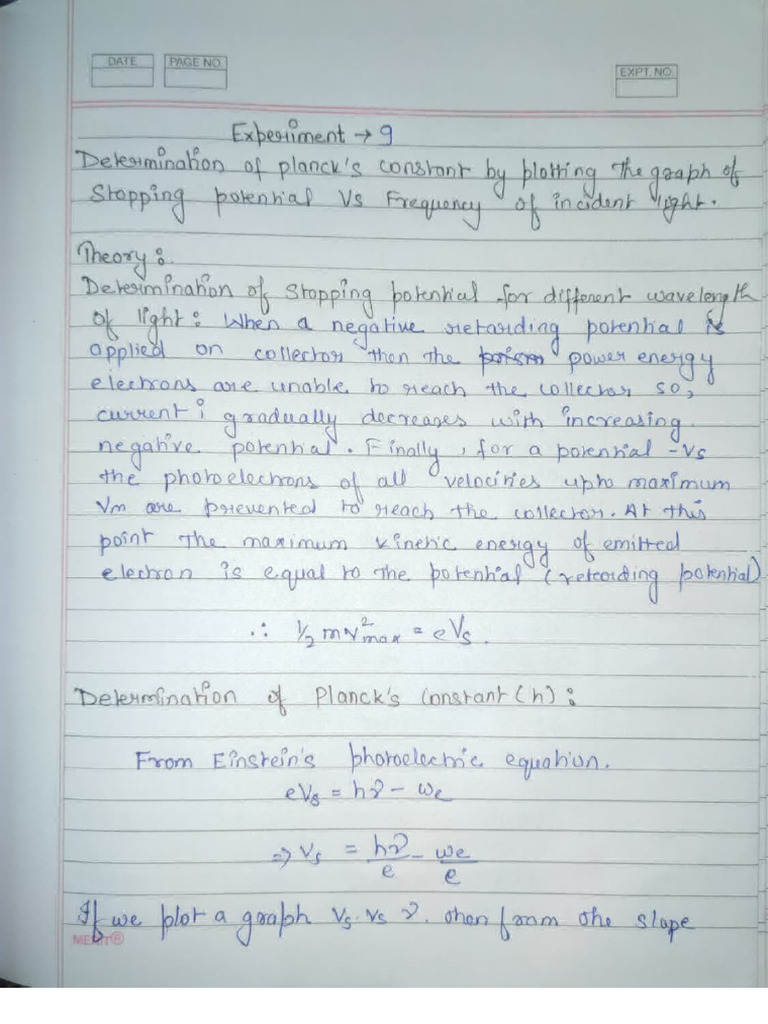 DATE
PAGE NO.
EXPT. NO.
Experiment → 9
Determination of planck's constant by plotting the graph of
Stopping potential Vs Frequency of incident light.
Theory:
Determination of Stopping potential for different wavelength
of light: When a negative retarding potential is
applied on collector then the power energy
electrons are unable to reach the collector so,
current i gradually decreases with increasing
negative potential. Finally, for a potential -Vs
the photoelectrons of all velocities upto maximum
Vm are prevented to reach the collector. At this
point the maximum kinetic energy of emitted
electron is equal to the potential (retarding potential)
∴ 1/2 mv²max = eVs.
Determination of Planck's Constant (h):
From Einstein's photoelectric equation.
eVs = hν - ωe
⇒ Vs = hν/e - ωe/e
If we plot a graph Vs. vs ν. then from the slope
MERIT®